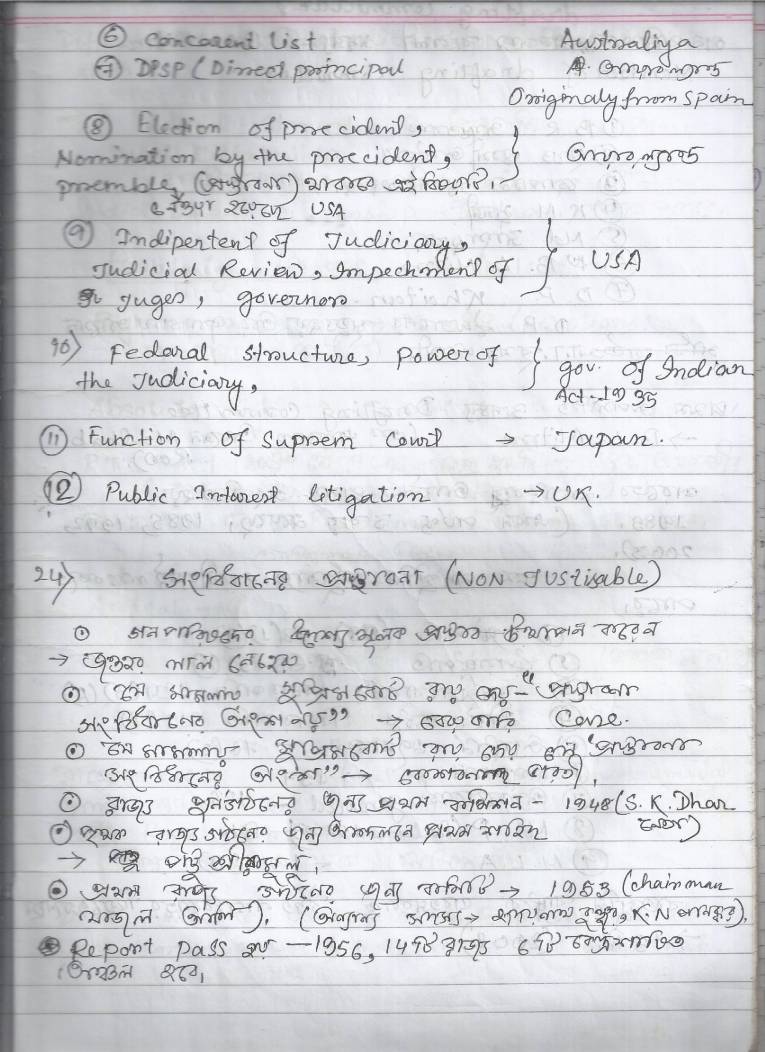 ⑥ Concarent List Austraaliya
⑦ DPSP (Direct principal A. আয়ারল্যান্ড
Originaly from Spain
⑧ Election of precident,
Nomination by the precident, } আয়ারল্যান্ড
preemble, (প্রস্তাবনা) থাকবে এই বিষয়টি।
নেওয়া হয়েছে USA
⑨ Indipertent of Judiciary,
Judicial Review, Impechment of } USA
Juges, governor
10) Fedaral structure, Power of } gov. of Indian
the Judiciary, Act-1935
⑪ Function of Suprem Court → Japan.
⑫ Public Interest litigation → UK.
24) সংবিধানের প্রস্তাবনা (NON JUStisable)
⊙ গনপরিষদের উদ্দেশ্য মূলক প্রস্তাব উত্থাপন করেন
→ জওহর লাল নেহেরু
⊙ যে মামলায় সুপ্রিমকোর্ট রায় দেয় - "প্রস্তাবনা
সংবিধানের অংশ নয়" → বেরুবারি Case.
⊙ যে মামলায় সুপ্রিমকোর্ট রায় দেয় যে "প্রস্তাবনা
সংবিধানের অংশ" → কেশবানন্দ ভারতী,
⊙ রাজ্য পুনর্গঠনের জন্য প্রথম কমিশন - 1948 (S.K. Dhar
⊙ পৃথক রাজ্য গঠনের জন্য আন্দোলনে প্রথম শহিদ
→ পট্টু শ্রীরামুলু,
⊙ প্রথম রাজ্য গঠনের জন্য কমিটি → 1953 (chairman
ফাজল আলি), (অন্যান্য সদস্য → হৃদয়নাথ কুঞ্জরু, K.N পানিক্কর),
⊙ Report pass হয় - 1956, 14টি রাজ্য 6টি কেন্দ্রশাসিত
অঞ্চল হবে,